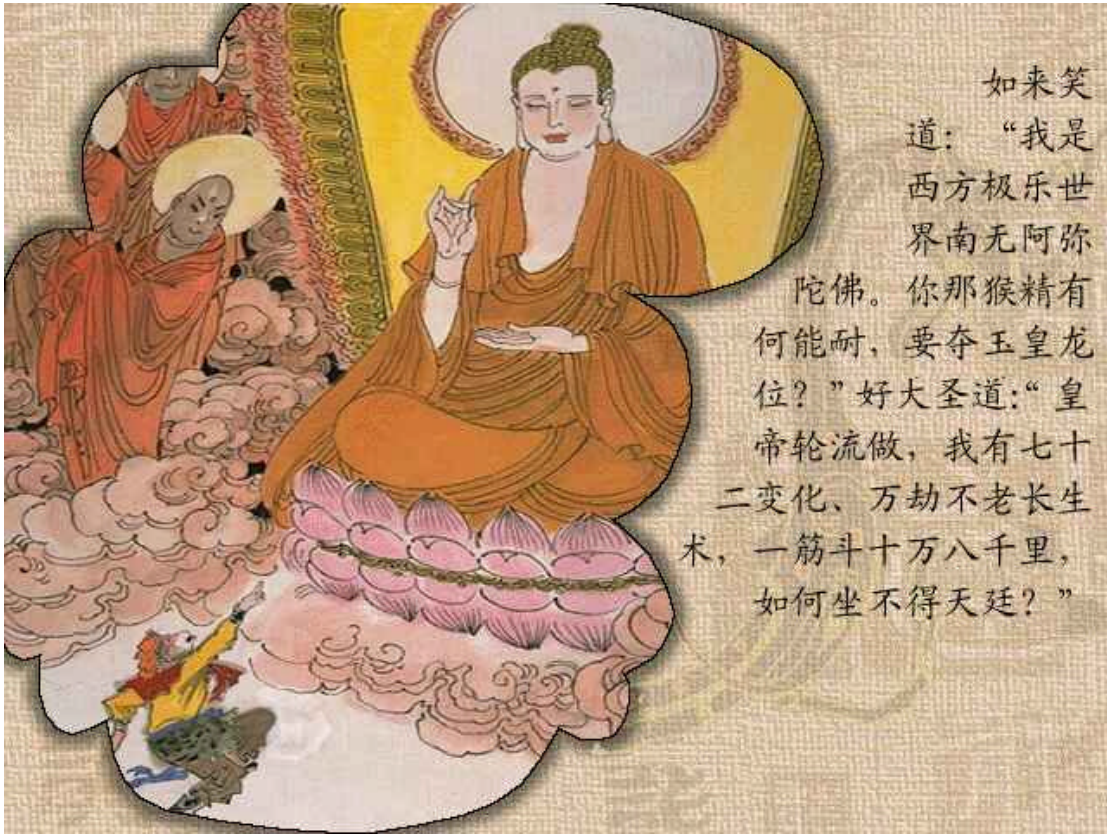 如来笑
道：“我是
西方极乐世
界南无阿弥
陀佛。你那猴精有
何能耐，要夺玉皇龙
位？”好大圣道：“皇
帝轮流做，我有七十
二变化、万劫不老长生
术，一筋斗十万八千里，
如何坐不得天廷？”